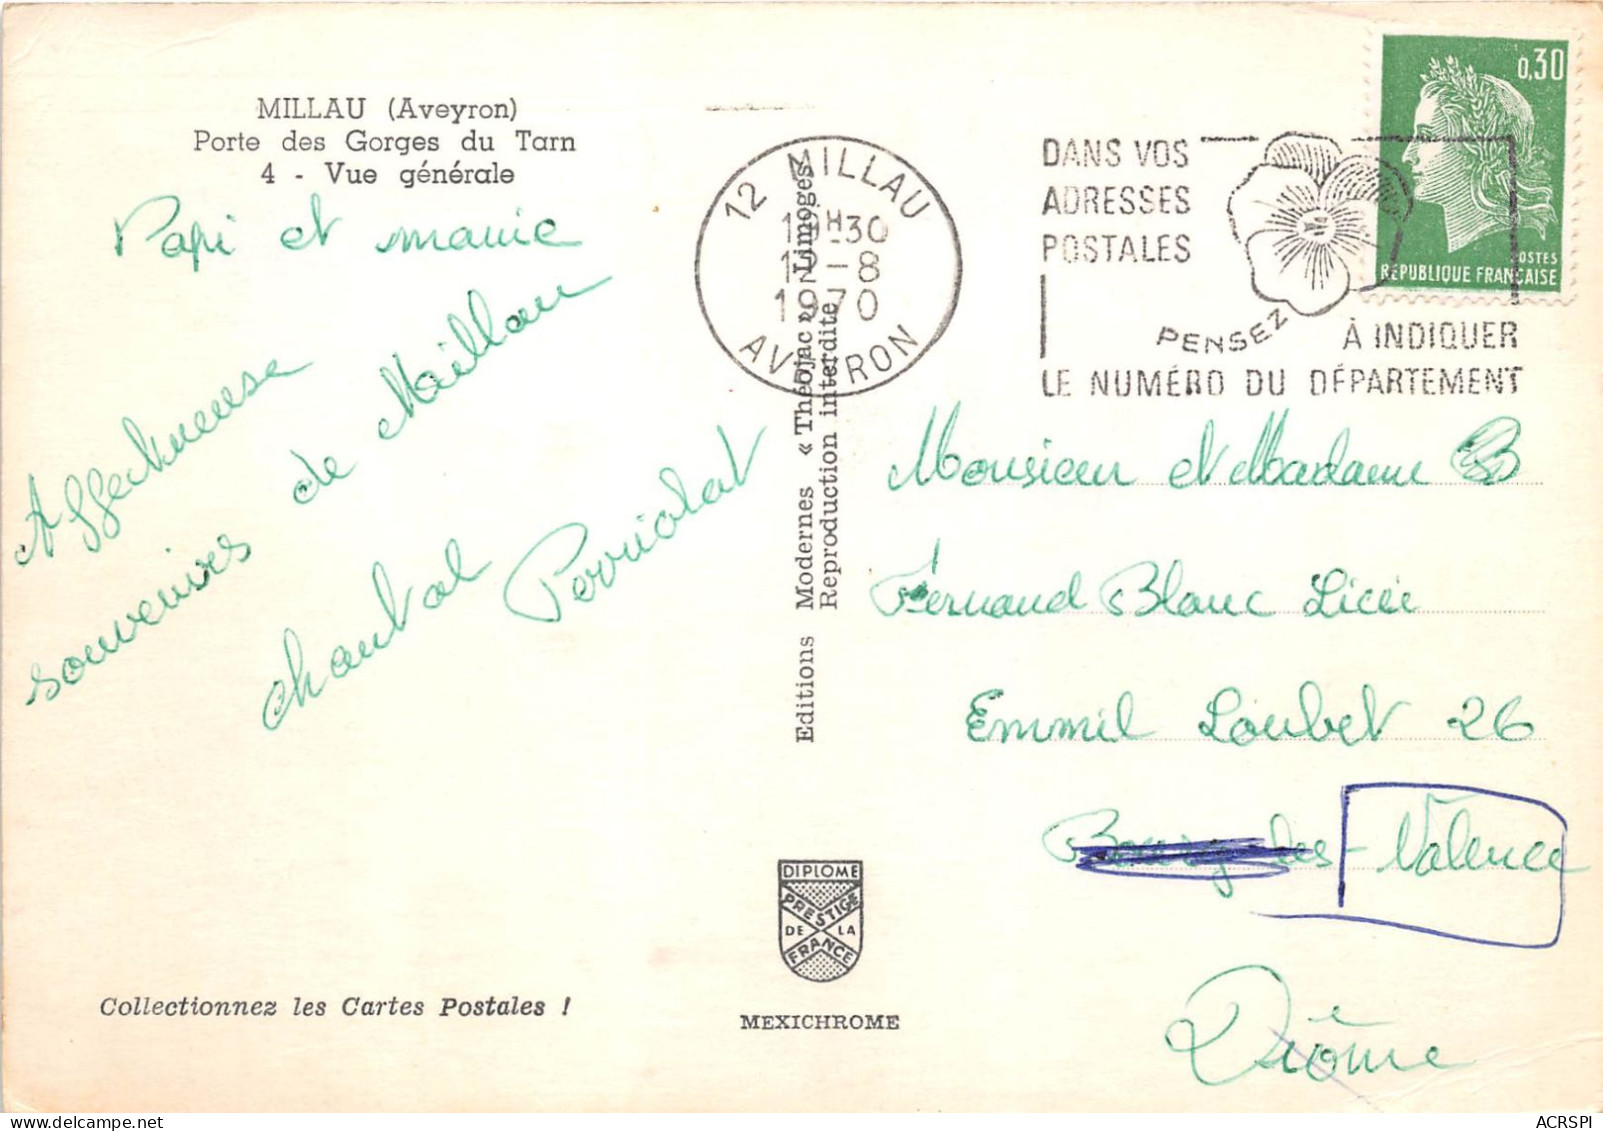 MILLAU (Aveyron)
Porte des Gorges du Tarn
4 - Vue générale
Papi et mamie
Affectueuse
souvenirs de Maillau
chantal Perriolat
Collectionnez les Cartes Postales !
Editions Modernes « Théojac » Limoges
Reproduction interdite
DIPLOME
PRESTIGE
DE LA
FRANCE
MEXICHROME
12 MILLAU
19H30
12-8
1970
AVEYRON
DANS VOS
ADRESSES
POSTALES
PENSEZ
À INDIQUER
LE NUMÉRO DU DÉPARTEMENT
0,30
POSTES
RÉPUBLIQUE FRANÇAISE
Monsieur et Madame
Fernand Blanc Licée
Emmil Loubet 26
- Valence
Drôme
ACRSPI